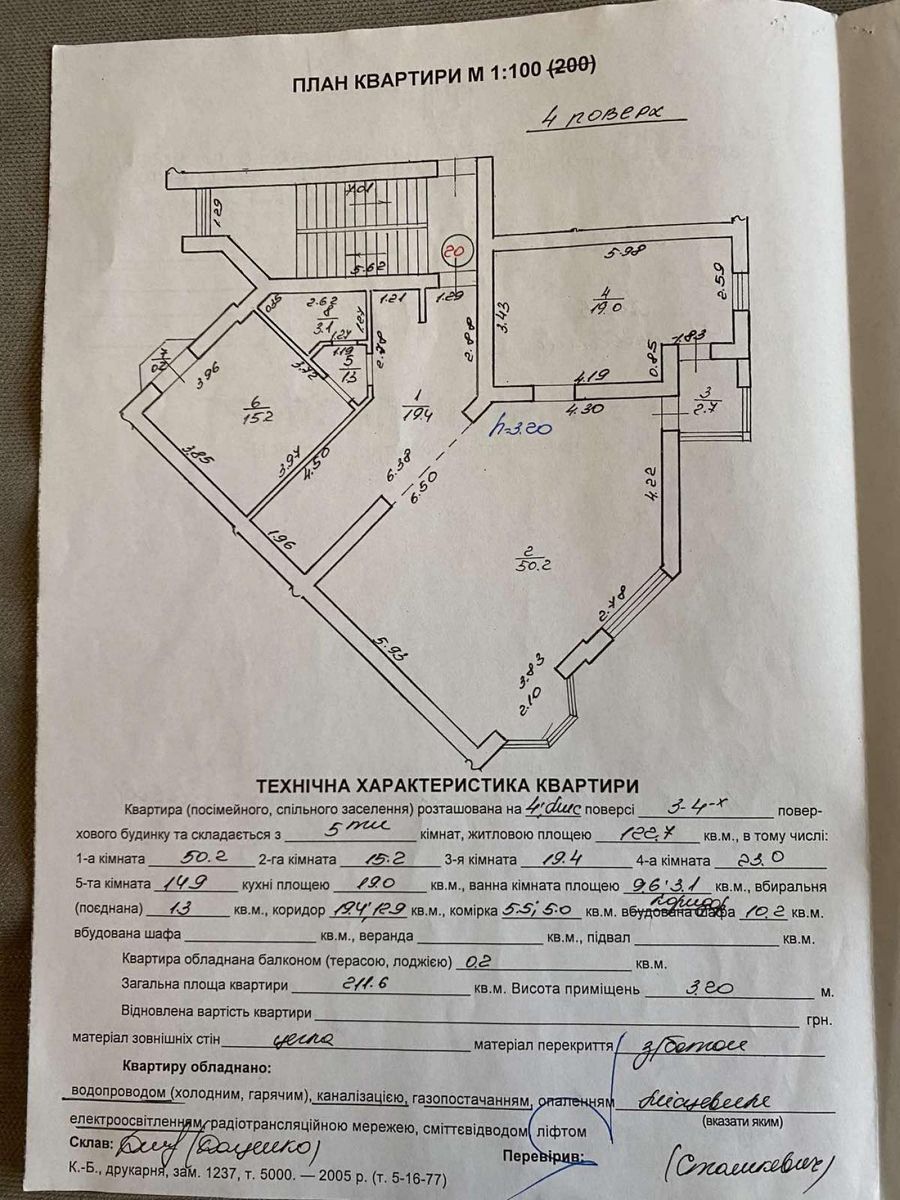 ПЛАН КВАРТИРИ М 1:100 (200)
4 поверх
7.01
1.29
5.62
20
5.98
2.59
0.35
2.62
8
3.1
1.27
1.21
1.29
3.43
4
19.0
1.27
1.19
2.78
2.88
0.85
1.83
7
0.2
3.96
3.72
5
1.3
4.19
3
2.7
6
15.2
1
19.4
4.30
h=3.20
3.85
3.97
4.50
6.38
6.50
4.22
1.96
2
50.2
2.78
5.93
3.83
2.10
ТЕХНІЧНА ХАРАКТЕРИСТИКА КВАРТИРИ
Квартира (посімейного, спільного заселення) розташована на 4, поверсі 3-4-х повер-
хового будинку та складається з 5ти кімнат, житловою площею 122,7 кв.м., в тому числі:
1-а кімната 50.2 2-га кімната 15.2 3-я кімната 19.4 4-а кімната 23.0
5-та кімната 14.9 кухні площею 19.0 кв.м., ванна кімната площею 9.6; 3.1 кв.м., вбиральня
(поєднана) 1.3 кв.м., коридор 19.4; 12.9 кв.м., комірка 5.5; 5.0 кв.м. вбудована шафа коридор 10.2 кв.м.
вбудована шафа кв.м., веранда кв.м., підвал кв.м.
Квартира обладнана балконом (терасою, лоджією) 0.2 кв.м.
Загальна площа квартири 211.6 кв.м. Висота приміщень 3.20 м.
Відновлена вартість квартири грн.
матеріал зовнішніх стін цегла матеріал перекриття з/бетон
Квартиру обладнано:
водопроводом (холодним, гарячим), каналізацією, газопостачанням, опаленням місцевим
(вказати яким)
електроосвітленням, радіотрансляційною мережею, сміттєвідводом, ліфтом
Склав: (Доценко) Перевірив: (Сташкевич)
К.-Б., друкарня, зам. 1237, т. 5000. — 2005 р. (т. 5-16-77)